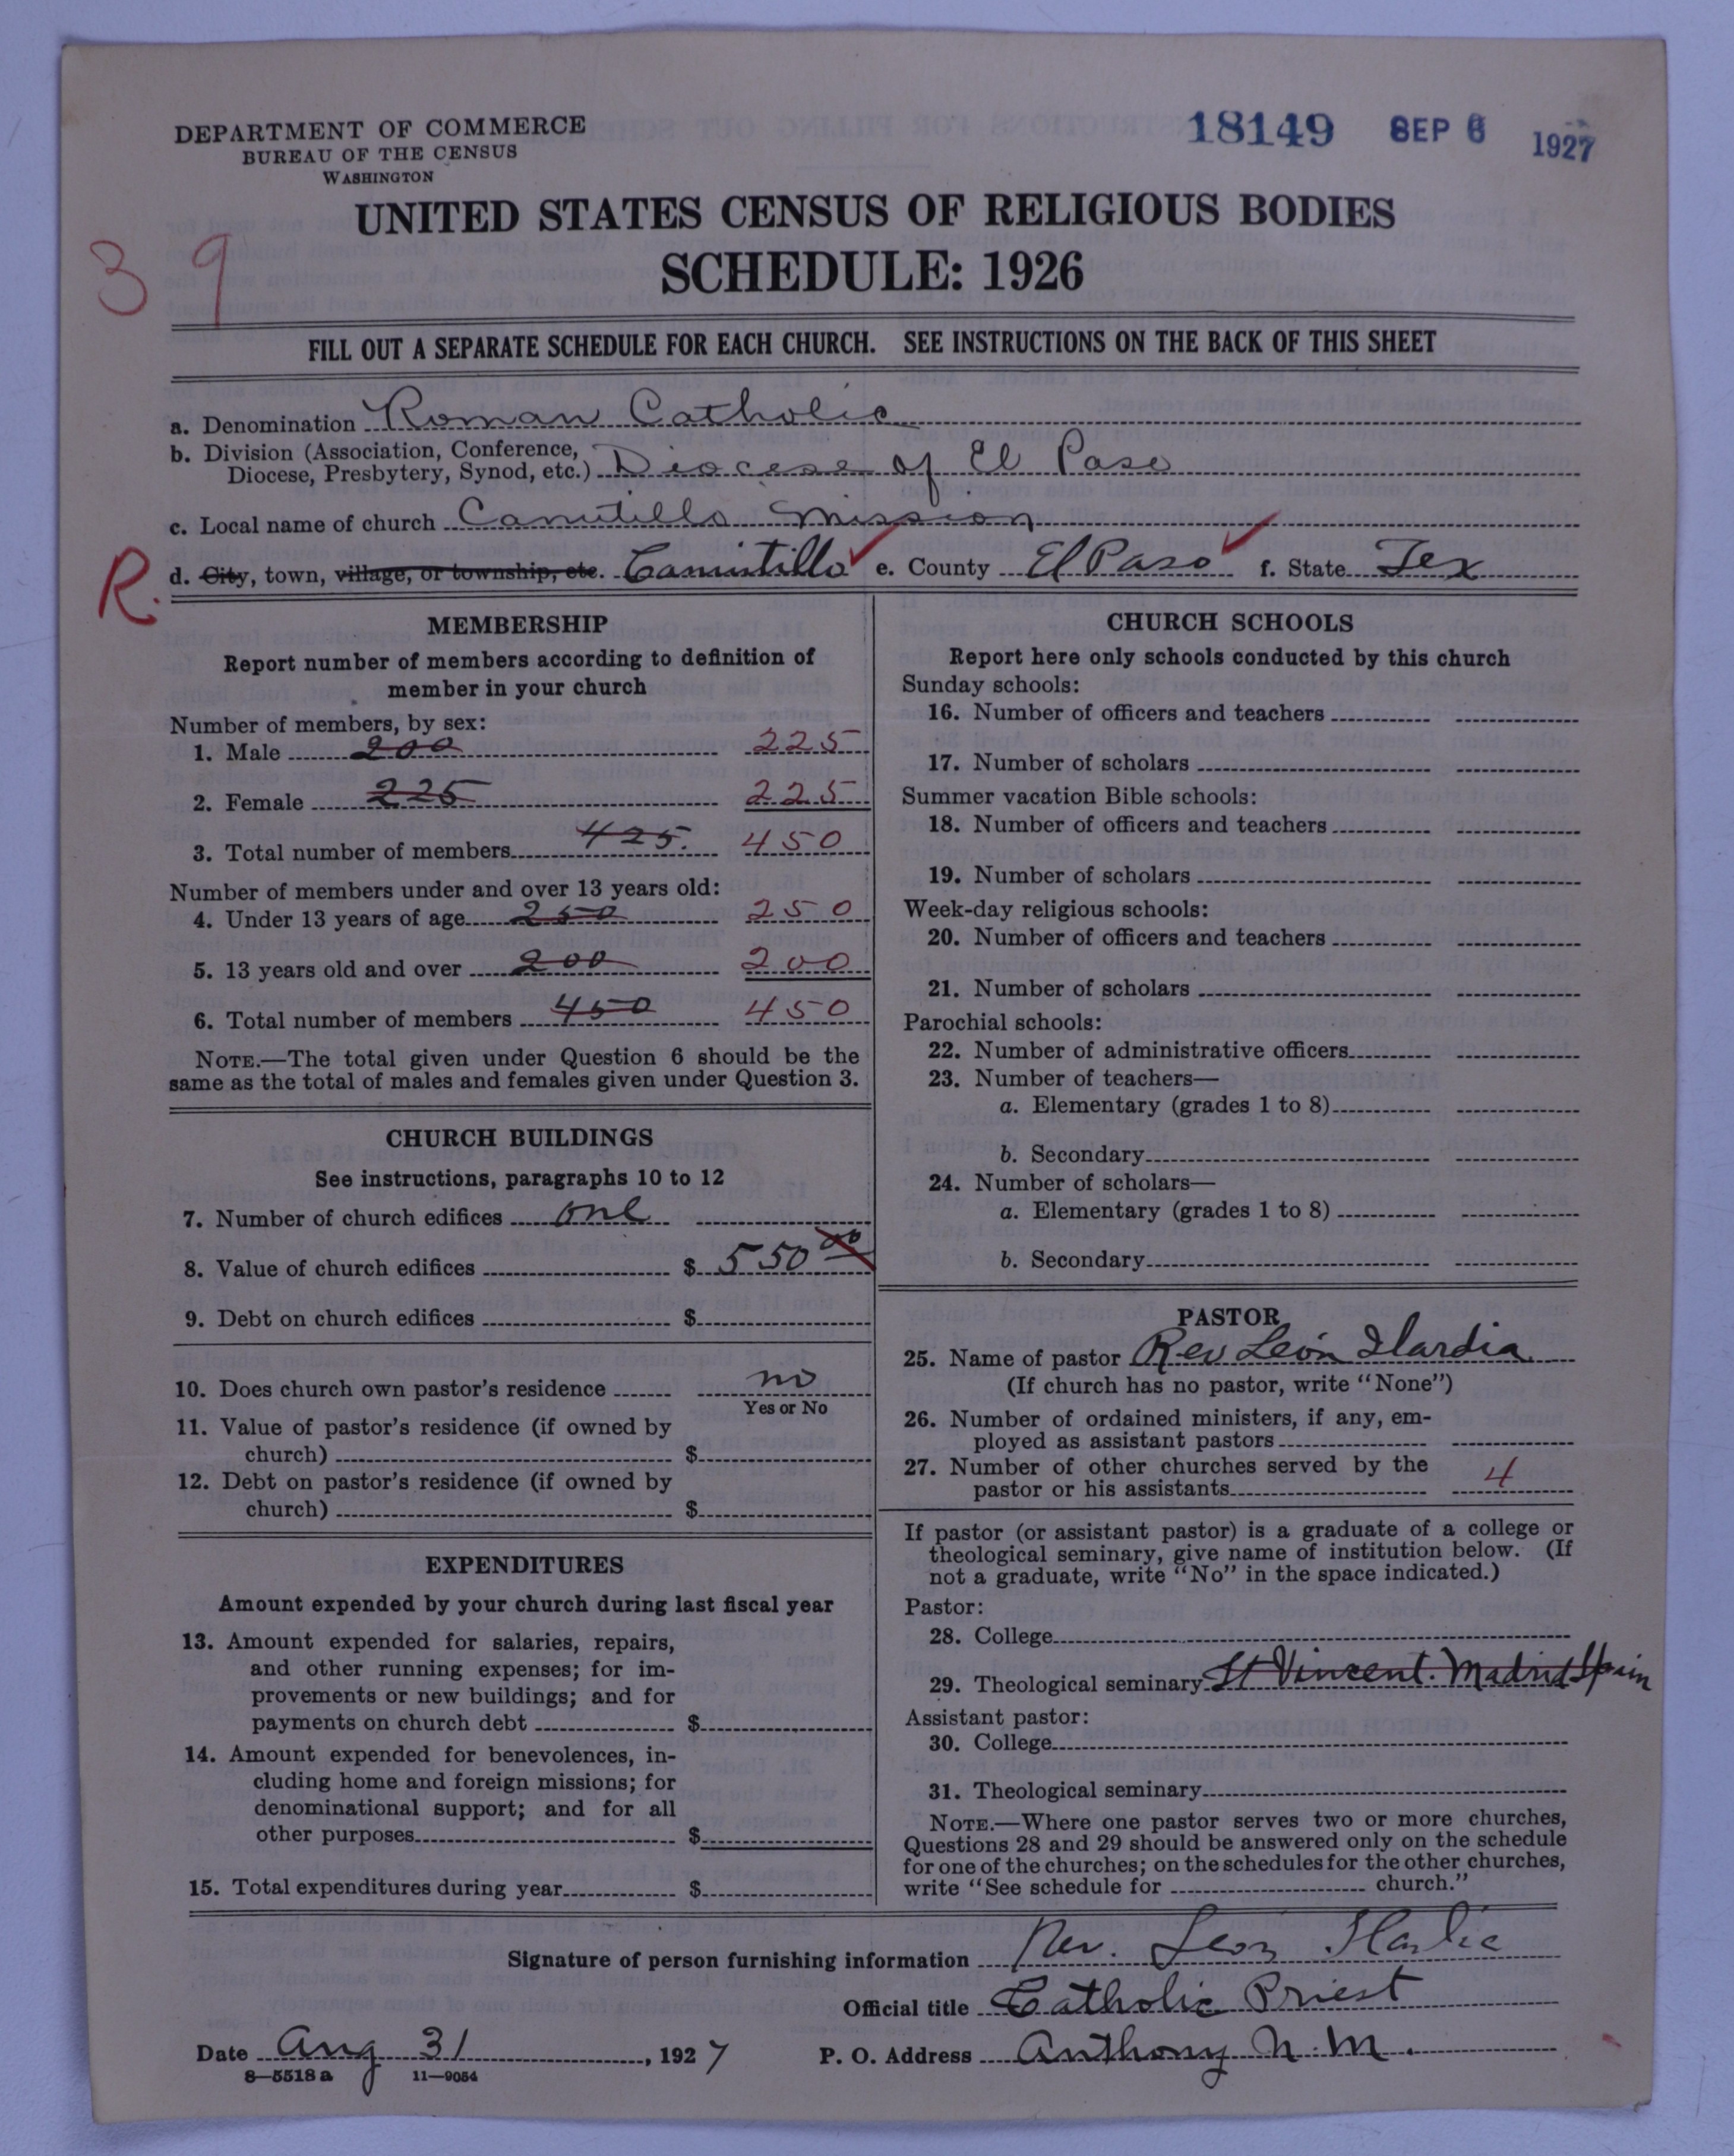 DEPARTMENT OF COMMERCE
BUREAU OF THE CENSUS
WASHINGTON
18149 SEP 6 1927
UNITED STATES CENSUS OF RELIGIOUS BODIES
SCHEDULE: 1926
39
FILL OUT A SEPARATE SCHEDULE FOR EACH CHURCH. SEE INSTRUCTIONS ON THE BACK OF THIS SHEET
a. Denomination Roman Catholic
b. Division (Association, Conference,
Diocese, Presbytery, Synod, etc.) Diocese of El Paso
c. Local name of church Canutillo Mission
R. d. City, town, village, or township, etc. Canutillo e. County El Paso f. State Tex
MEMBERSHIP
Report number of members according to definition of
member in your church
Number of members, by sex:
1. Male 200 225
2. Female 225 225
3. Total number of members 425. 450
Number of members under and over 13 years old:
4. Under 13 years of age 250 250
5. 13 years old and over 200 200
6. Total number of members 450 450
NOTE.—The total given under Question 6 should be the
same as the total of males and females given under Question 3.
CHURCH BUILDINGS
See instructions, paragraphs 10 to 12
7. Number of church edifices one
8. Value of church edifices $ 550 00
9. Debt on church edifices $
10. Does church own pastor's residence no
Yes or No
11. Value of pastor's residence (if owned by
church) $
12. Debt on pastor's residence (if owned by
church) $
EXPENDITURES
Amount expended by your church during last fiscal year
13. Amount expended for salaries, repairs,
and other running expenses; for im-
provements or new buildings; and for
payments on church debt $
14. Amount expended for benevolences, in-
cluding home and foreign missions; for
denominational support; and for all
other purposes $
15. Total expenditures during year $
CHURCH SCHOOLS
Report here only schools conducted by this church
Sunday schools:
16. Number of officers and teachers
17. Number of scholars
Summer vacation Bible schools:
18. Number of officers and teachers
19. Number of scholars
Week-day religious schools:
20. Number of officers and teachers
21. Number of scholars
Parochial schools:
22. Number of administrative officers
23. Number of teachers—
a. Elementary (grades 1 to 8)
b. Secondary
24. Number of scholars—
a. Elementary (grades 1 to 8)
b. Secondary
PASTOR
25. Name of pastor Rev León
(If church has no pastor, write "None")
26. Number of ordained ministers, if any, em-
ployed as assistant pastors
27. Number of other churches served by the
pastor or his assistants 4
If pastor (or assistant pastor) is a graduate of a college or
theological seminary, give name of institution below. (If
not a graduate, write "No" in the space indicated.)
Pastor:
28. College
29. Theological seminary St Vincent. Madrid Spain
Assistant pastor:
30. College
31. Theological seminary
NOTE.—Where one pastor serves two or more churches,
Questions 28 and 29 should be answered only on the schedule
for one of the churches; on the schedules for the other churches,
write "See schedule for church."
Signature of person furnishing information Rev. Leon
Official title Catholic Priest
Date Aug 31, 1927 P. O. Address Anthony N. M.
8—5518a 11—9054